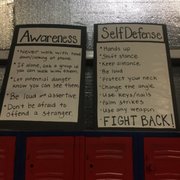 Awareness
• Never walk with head
down/looking at phone.
• If alone, ask a group if
you can walk with them.
• Let potential danger
know you can see them
• Be loud and assertive
• Don't be afraid to
offend a stranger.
Self Defense
• Hands up
• Split stance
• Keep distance
• Be loud
• Protect your neck
• Change the angle
• Use keys/nails
• Palm strikes
• Use any weapon
FIGHT BACK!